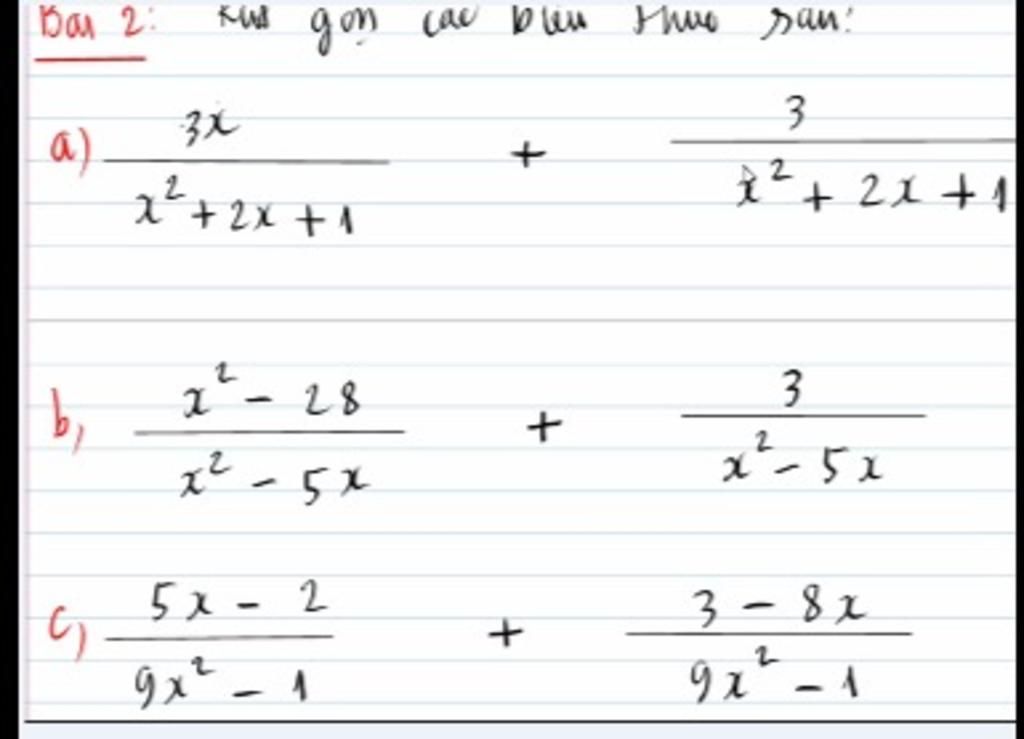 Bài 2: Rút gọn các biểu thức sau:
a) 3x / (x² + 2x + 1) + 3 / (x² + 2x + 1)
b, (x² - 28) / (x² - 5x) + 3 / (x² - 5x)
c, (5x - 2) / (9x² - 1) + (3 - 8x) / (9x² - 1)